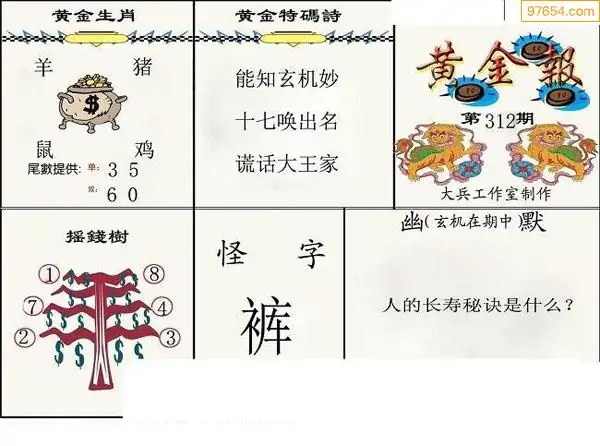 97654.com
黄金生肖
羊 猪
$
鼠 鸡
尾數提供: 单: 3 5
双: 6 0
黄金特碼詩
能知玄机妙
十七唤出名
谎话大王家
黄金報
第312期
大兵工作室制作
摇錢樹
① ⑧
⑦ ④
② ③
怪 字
裤
幽(玄机在期中)默
人的长寿秘诀是什么?